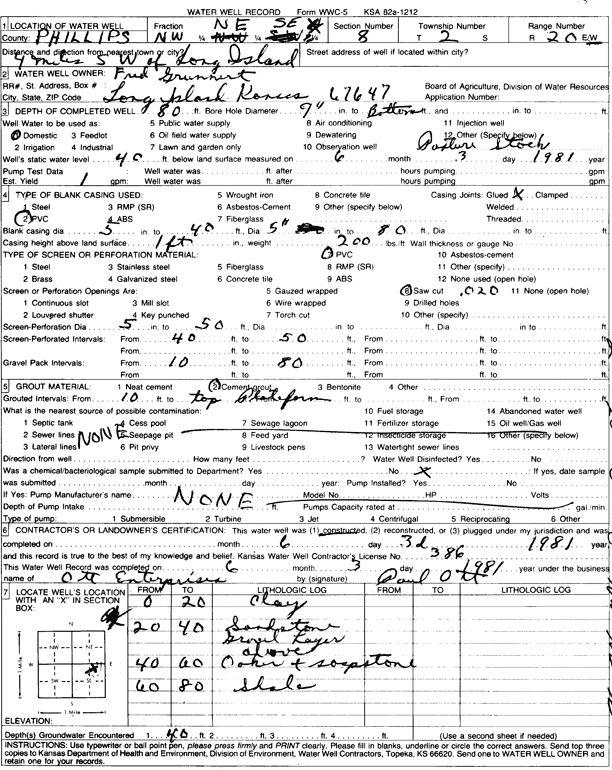 WATER WELL RECORD Form WWC-5 KSA 82a-1212
1 LOCATION OF WATER WELL Fraction NE SE Section Number Township Number Range Number
County: PHILLIPS NW ¼ ¼ ¼ 8 T 2 S R 20 E/W
Distance and direction from nearest town or city? Street address of well if located within city?
4 miles SW of Long Island
2 WATER WELL OWNER: Fred Grunnert
RR#, St. Address, Box # : Board of Agriculture, Division of Water Resources
City, State, ZIP Code : Long Island Kansas 67647 Application Number:
3 DEPTH OF COMPLETED WELL 80 ft. Bore Hole Diameter 9" in. to Bottom ft., and in. to ft.
Well Water to be used as: 5 Public water supply 8 Air conditioning 11 Injection well
1 Domestic 3 Feedlot 6 Oil field water supply 9 Dewatering 12 Other (Specify below)
2 Irrigation 4 Industrial 7 Lawn and garden only 10 Observation well Pasture Stock
Well's static water level 40 ft. below land surface measured on 6 month 3 day 1981 year
Pump Test Data : Well water was ft. after hours pumping gpm
Est. Yield 1 gpm: Well water was ft. after hours pumping gpm
4 TYPE OF BLANK CASING USED: 5 Wrought iron 8 Concrete tile Casing Joints: Glued X Clamped
1 Steel 3 RMP (SR) 6 Asbestos-Cement 9 Other (specify below) Welded
2 PVC 4 ABS 7 Fiberglass Threaded
Blank casing dia 5 in. to 40 ft., Dia 5" in. to 80 ft., Dia in. to ft.
Casing height above land surface 1 ft in., weight 200 lbs./ft. Wall thickness or gauge No
TYPE OF SCREEN OR PERFORATION MATERIAL: 7 PVC 10 Asbestos-cement
1 Steel 3 Stainless steel 5 Fiberglass 8 RMP (SR) 11 Other (specify)
2 Brass 4 Galvanized steel 6 Concrete tile 9 ABS 12 None used (open hole)
Screen or Perforation Openings Are: 5 Gauzed wrapped 8 Saw cut .020 11 None (open hole)
1 Continuous slot 3 Mill slot 6 Wire wrapped 9 Drilled holes
2 Louvered shutter 4 Key punched 7 Torch cut 10 Other (specify)
Screen-Perforation Dia 5 in. to 50 ft., Dia in. to ft., Dia in to ft.
Screen-Perforated Intervals: From 40 ft. to 50 ft., From ft. to ft.
From ft. to ft., From ft. to ft.
Gravel Pack Intervals: From 10 ft. to 80 ft., From ft. to ft.
From ft. to ft., From ft. to ft.
5 GROUT MATERIAL: 1 Neat cement 2 Cement grout 3 Bentonite 4 Other
Grouted Intervals: From 10 ft. to top Plateform ft. to ft., From ft. to ft.
What is the nearest source of possible contamination: 10 Fuel storage 14 Abandoned water well
1 Septic tank 4 Cess pool 7 Sewage lagoon 11 Fertilizer storage 15 Oil well/Gas well
2 Sewer lines NONE 5 Seepage pit 8 Feed yard 12 Insecticide storage 16 Other (specify below)
3 Lateral lines 6 Pit privy 9 Livestock pens 13 Watertight sewer lines
Direction from well How many feet ? Water Well Disinfected? Yes No
Was a chemical/bacteriological sample submitted to Department? Yes No X : If yes, date sample
was submitted month day year: Pump Installed? Yes No
If Yes: Pump Manufacturer's name NONE Model No. HP Volts
Depth of Pump Intake ft. Pumps Capacity rated at gal/min.
Type of pump: 1 Submersible 2 Turbine 3 Jet 4 Centrifugal 5 Reciprocating 6 Other
6 CONTRACTOR'S OR LANDOWNER'S CERTIFICATION: This water well was (1) constructed, (2) reconstructed, or (3) plugged under my jurisdiction and was
completed on 6 month 3d day 1981 year
and this record is true to the best of my knowledge and belief. Kansas Water Well Contractor's License No. 386
This Water Well Record was completed on 6 month 3 day 1981 year under the business
name of Ott Enterprises by (signature) Paul Ott
7 LOCATE WELL'S LOCATION WITH AN "X" IN SECTION BOX: FROM TO LITHOLOGIC LOG FROM TO LITHOLOGIC LOG
0 20 Clay
N
20 40 Sandstone
NW NE Gravel Layer
above
W E 40 60 Ocher + soapstone
SW SE 60 80 Shale
1 Mile
S
1 Mile
ELEVATION:
Depth(s) Groundwater Encountered 1. 40 ft. 2. ft. 3. ft. 4. ft. (Use a second sheet if needed)
INSTRUCTIONS: Use typewriter or ball point pen, please press firmly and PRINT clearly. Please fill in blanks, underline or circle the correct answers. Send top three
copies to Kansas Department of Health and Environment, Division of Environment, Water Well Contractors, Topeka, KS 66620. Send one to WATER WELL OWNER and
retain one for your records.